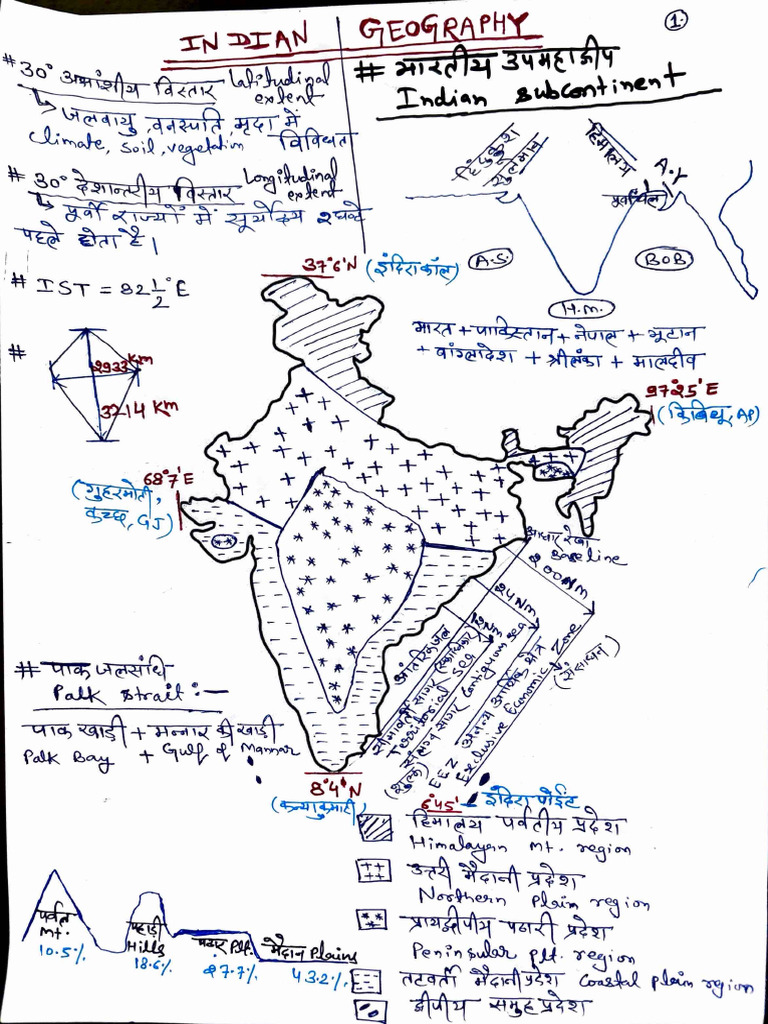 INDIAN GEOGRAPHY
1.
# 30° अक्षांशीय विस्तार Latitudinal extent
↳ जलवायु, वनस्पति, मृदा में विविधता
climate, soil, vegetation
# 30° देशान्तरीय विस्तार Longitudinal extent
↳ पूर्वी राज्यों में सूर्योदय 2 घण्टे
पहले होता है।
# IST = 82 1/2° E
#
2933 KM
3214 KM
# भारतीय उपमहाद्वीप
Indian subcontinent
हिंदुकुश
सुलेमान
हिमालय
A.Y
पूर्वांचल
A.S.
BOB
H.M.
भारत + पाकिस्तान + नेपाल + भूटान
+ बांग्लादेश + श्रीलंका + मालदीव
37°6'N (इंदिरा कॉल)
97°25'E
(किबिथू, AP)
68°7'E
(गुहरमोती,
कच्छ, GJ)
आधार रेखा
Baseline
200 NM
24 NM
12 NM
आंतरिक जल
सीमावर्ती सागर
Territorial sea
संलग्न सागर Contiguous sea
(शुल्क)
EEZ अनन्य आर्थिक क्षेत्र
Exclusive Economic Zone
(संसाधन)
# पाक जलसंधि
Palk Strait :-
पाक खाड़ी + मन्नार की खाड़ी
Palk Bay + Gulf of Mannar
8°4'N
(कन्याकुमारी)
6°45' - इंदिरा पॉइंट
हिमालय पर्वतीय प्रदेश
Himalayan mt. region
उत्तरी मैदानी प्रदेश
Northern Plain region
प्रायद्वीपीय पठारी प्रदेश
Peninsular plt. region
तटवर्ती मैदानी प्रदेश Coastal plain region
द्वीपीय समूह प्रदेश
पर्वत
Mt.
10.5%
पहाड़ी
Hills
18.6%
पठार Plt.
27.7%
मैदान Plains
43.2%